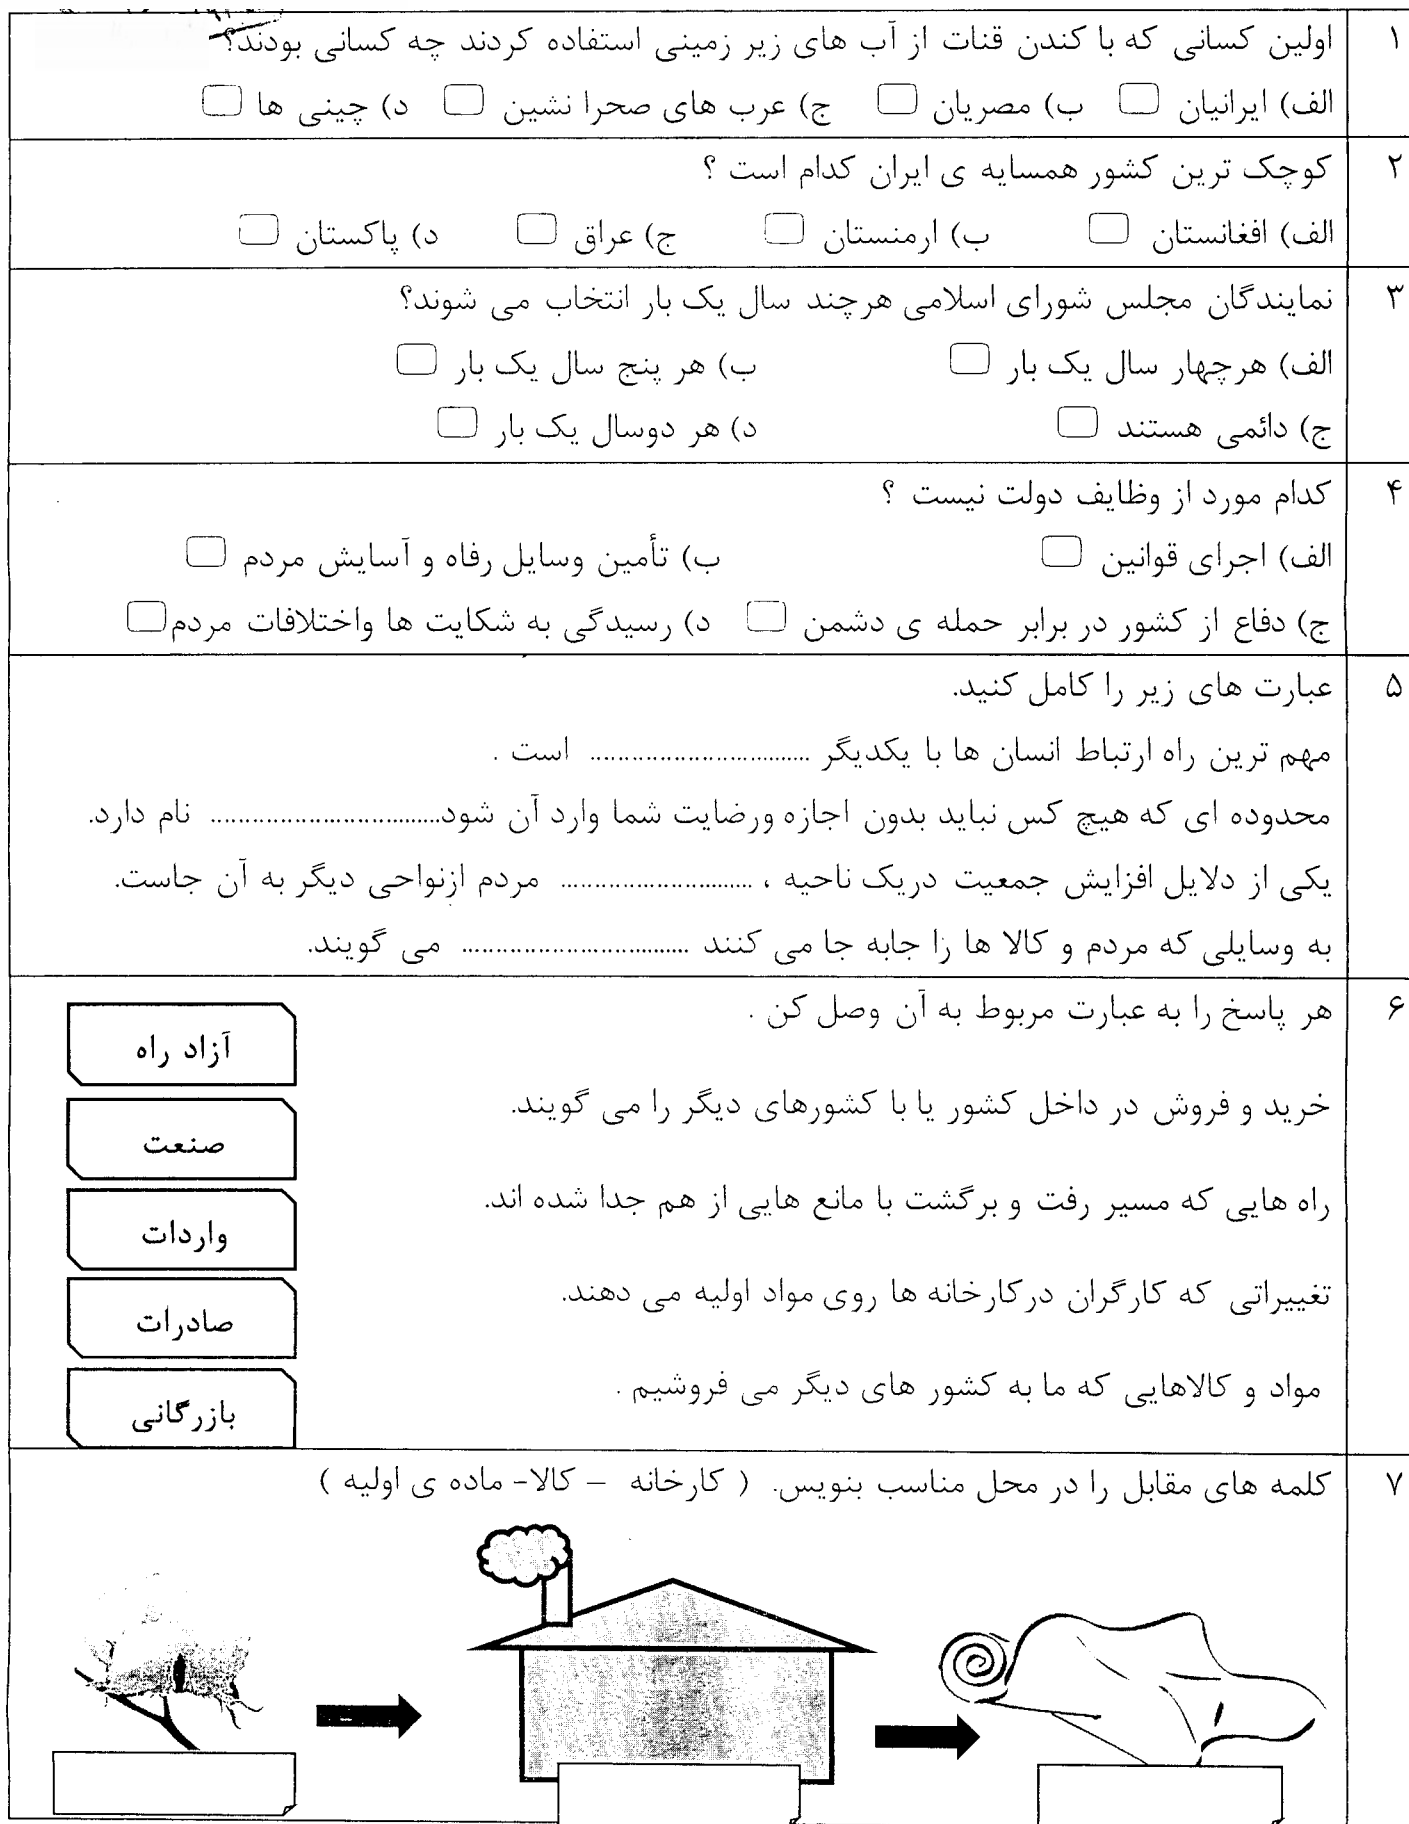 ۱ اولین کسانی که با کندن قنات از آب های زیر زمینی استفاده کردند چه کسانی بودند؟
الف) ایرانیان ب) مصریان ج) عرب های صحرا نشین د) چینی ها
۲ کوچک ترین کشور همسایه ی ایران کدام است ؟
الف) افغانستان ب) ارمنستان ج) عراق د) پاکستان
۳ نمایندگان مجلس شورای اسلامی هرچند سال یک بار انتخاب می شوند؟
الف) هرچهار سال یک بار ب) هر پنج سال یک بار
ج) دائمی هستند د) هر دوسال یک بار
۴ کدام مورد از وظایف دولت نیست ؟
الف) اجرای قوانین ب) تأمین وسایل رفاه و آسایش مردم
ج) دفاع از کشور در برابر حمله ی دشمن د) رسیدگی به شکایت ها واختلافات مردم
۵ عبارت های زیر را کامل کنید.
مهم ترین راه ارتباط انسان ها با یکدیگر ................................ است .
محدوده ای که هیچ کس نباید بدون اجازه ورضایت شما وارد آن شود................................. نام دارد.
یکی از دلایل افزایش جمعیت دریک ناحیه ، ........................... مردم ازنواحی دیگر به آن جاست.
به وسایلی که مردم و کالا ها را جابه جا می کنند ................................ می گویند.
۶ هر پاسخ را به عبارت مربوط به آن وصل کن .
آزاد راه
خرید و فروش در داخل کشور یا با کشورهای دیگر را می گویند.
صنعت
راه هایی که مسیر رفت و برگشت با مانع هایی از هم جدا شده اند.
واردات
تغییراتی که کارگران درکارخانه ها روی مواد اولیه می دهند.
صادرات
مواد و کالاهایی که ما به کشور های دیگر می فروشیم .
بازرگانی
۷ کلمه های مقابل را در محل مناسب بنویس. ( کارخانه – کالا- ماده ی اولیه )